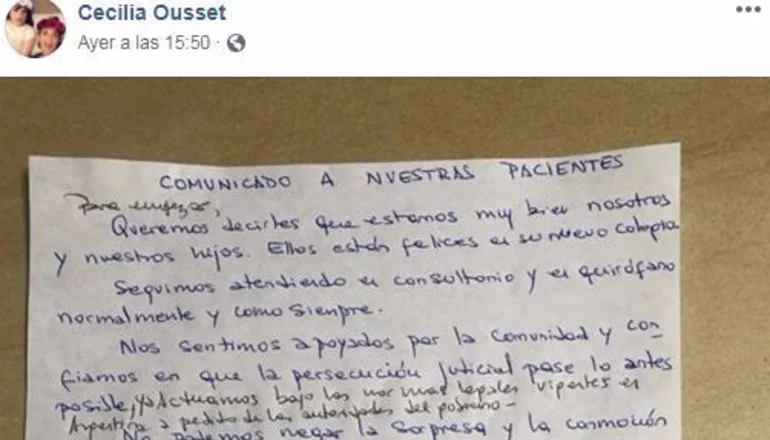 Cecilia Ousset
Ayer a las 15:50 ·
COMUNICADO A NUESTRAS PACIENTES
Para empezar,
Queremos decirles que estamos muy bien nosotros
y nuestros hijos. Ellos están felices en su nuevo
Seguimos atendiendo en consultorio y en quirófano
normalmente y como siempre.
Nos sentimos apoyados por la comunidad y con-
fiamos en que la persecución judicial pase lo antes
posible, ya Actuamos bajo las normas legales vigentes en
Argentina a pedido de las autoridades del
No podemos negar la sorpresa y la conmoción